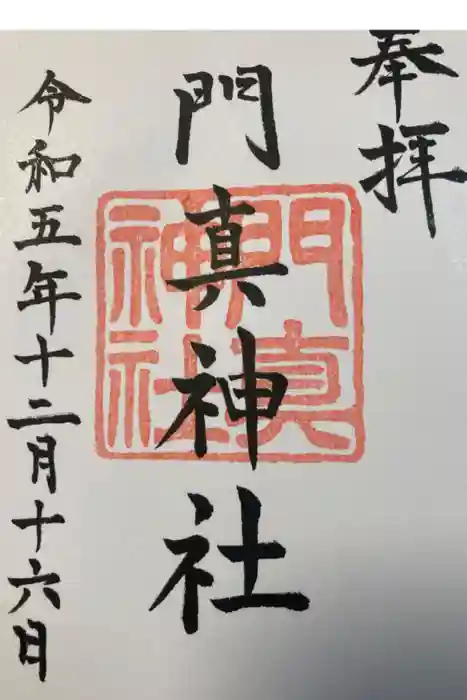 奉拝
門真神社
門真
神社
令和五年十二月十六日